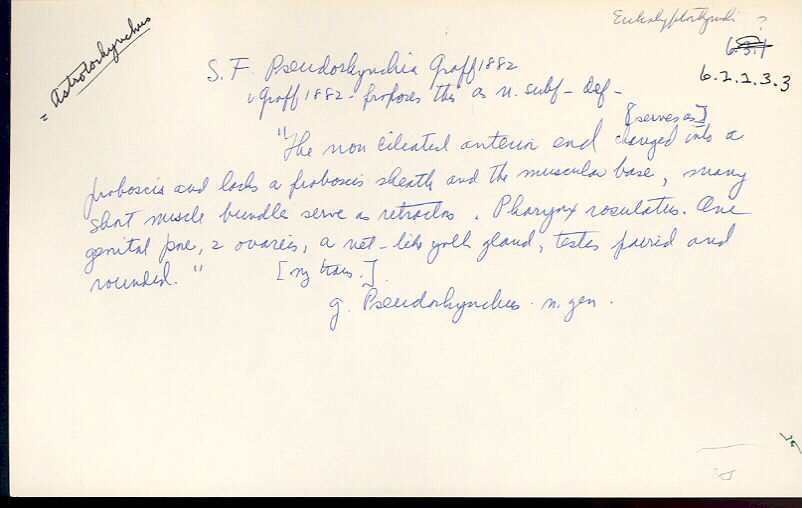 Eukalyptorhynchi ?
= Astrotorhynchus
6.3.1
6.2.2.3.3
S. F. Pseudorhynchia Graff 1882
Graff 1882 - proposes this as n. subf - def -
[serves as]
"The non ciliated anterior end changed into a
proboscis and lacks a proboscis sheath and the muscular base, many
short muscle bundle serve as retractors. Pharynx rosulatus. One
genital pore, 2 ovaries, a net-like yolk gland, testes paired and
rounded." [my trans.]
g. Pseudorhynchus n. gen.